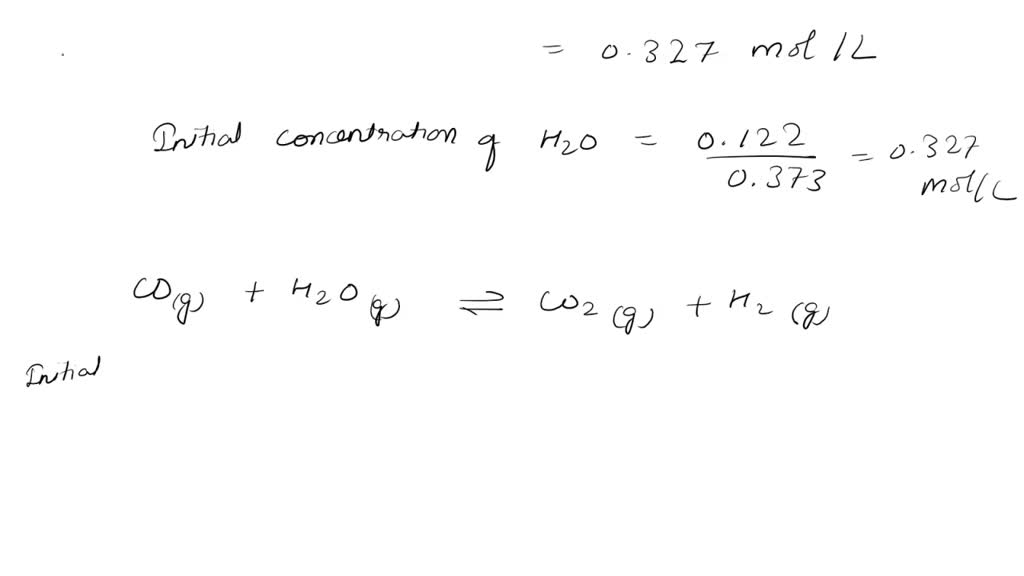 = 0.327 mol/L
Initial concentration of H2O = 0.122 / 0.373 = 0.327 mol/L
CO(g) + H2O(g) ⇌ CO2(g) + H2(g)
Initial